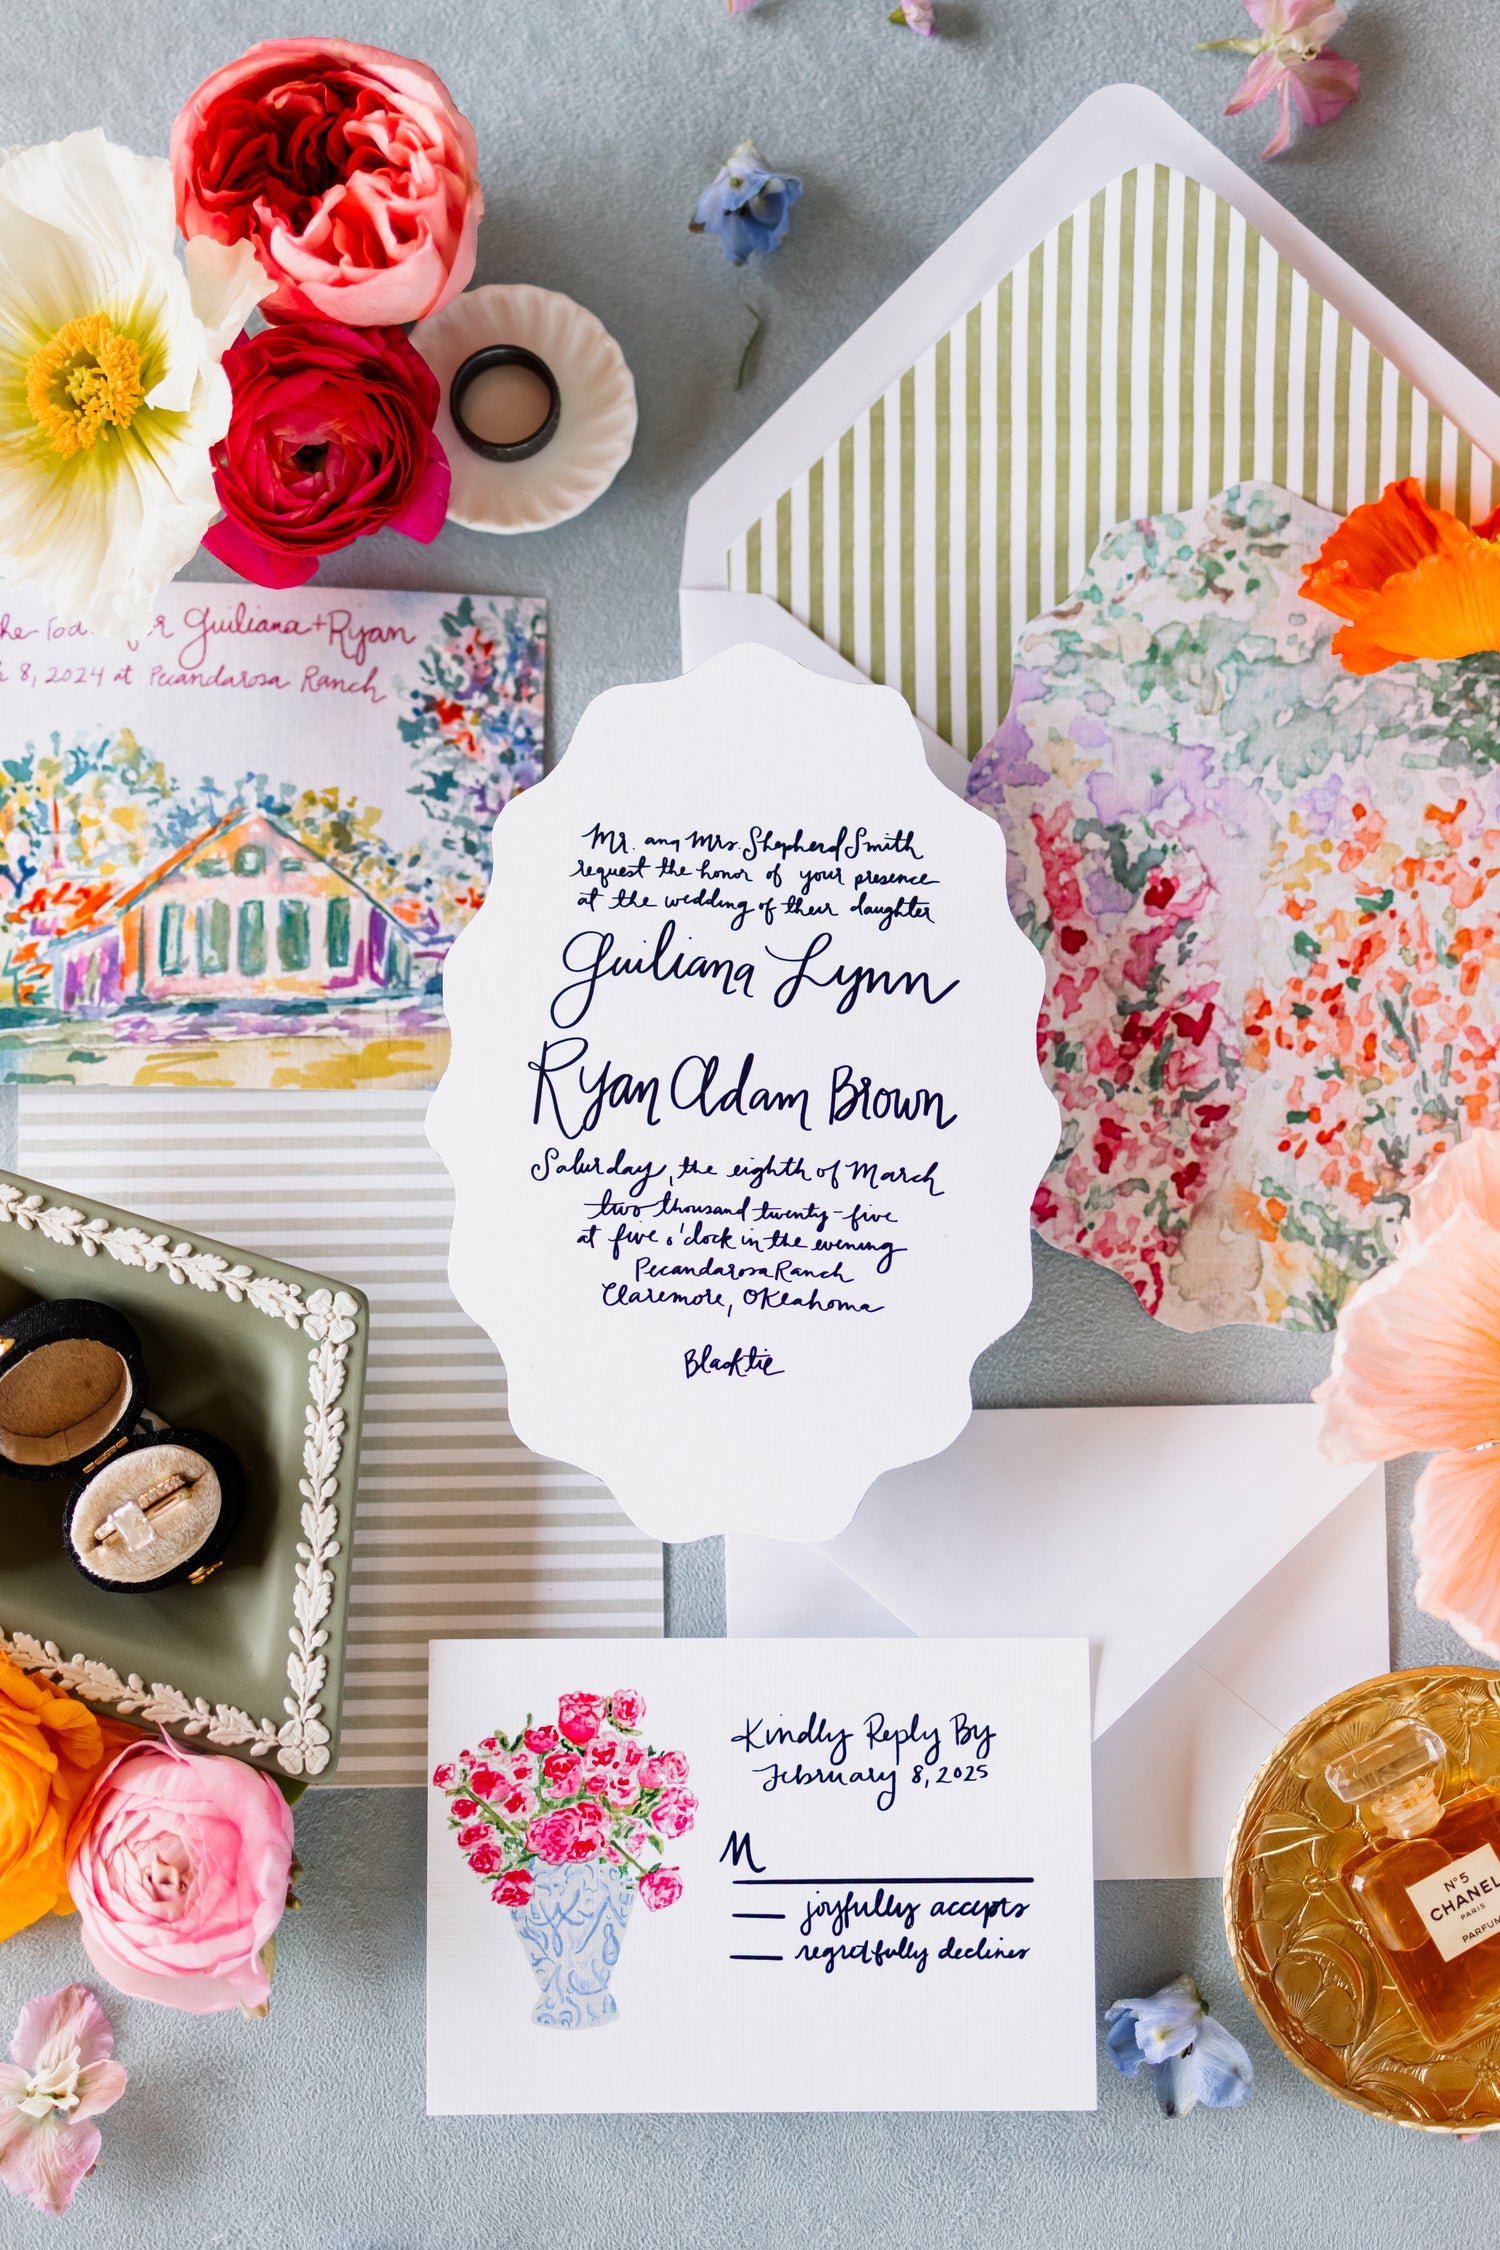 Guiliana + Ryan
8, 2024 at Pecandarosa Ranch
Mr. and Mrs. Shepherd Smith
request the honor of your presence
at the wedding of their daughter
Guiliana Lynn
Ryan Adam Brown
Saturday, the eighth of March
two thousand twenty-five
at five o'clock in the evening
Pecandarosa Ranch
Claremore, Oklahoma
Black tie
Kindly Reply By
February 8, 2025
M
joyfully accepts
regretfully declines
N°5
CHANEL
PARIS
PARFUM